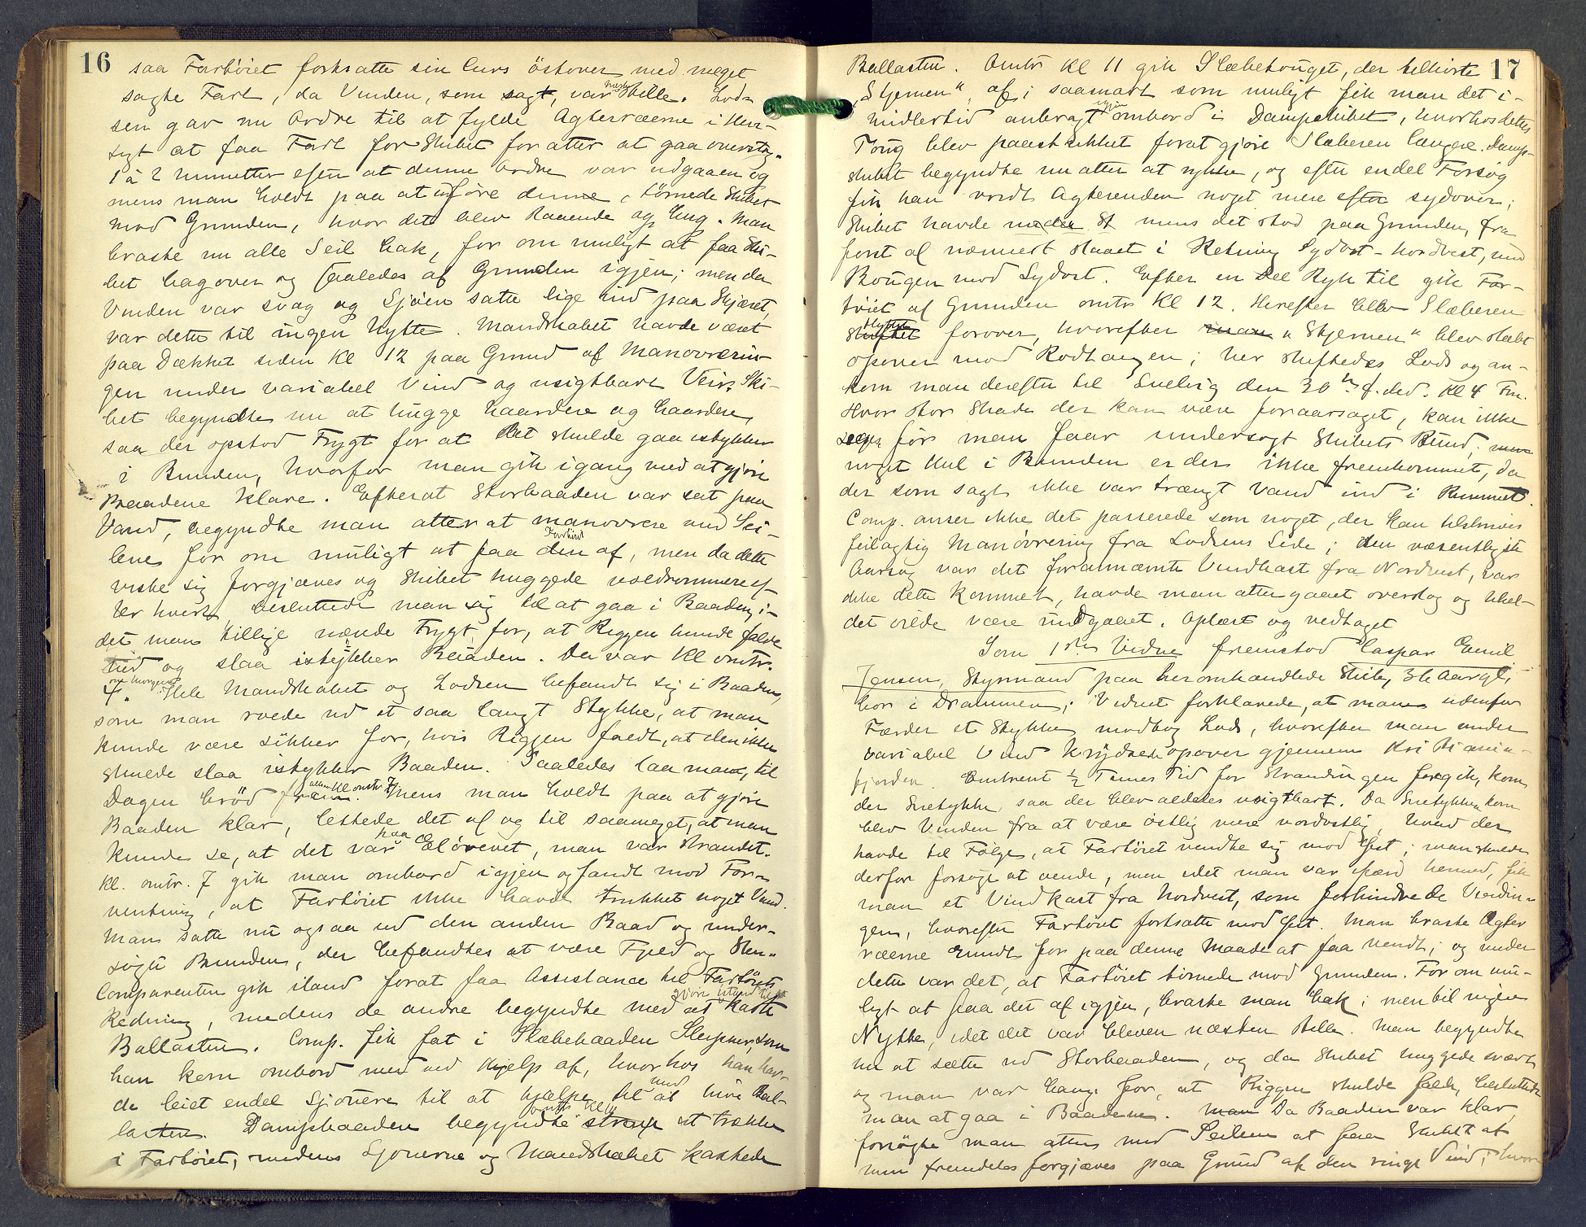 16
saa Fartöiet fortsatte sin Curs östover med meget
sagte Fart, da Vinden, som sagt, var næsten stille. Lod-
sen gav nu Ordre til at fylde Agterræerne i Hen-
sigt at faa Fart for Skibet for atter at gaa overstag.
1 à 2 minutter efter at denne Ordre var udgaaen og
mens man holdt paa at udføre denne, tørnede Skibet
mod Grunden, hvor det blev staaende og hug. Man
braste nu alle Seil bak, for om muligt at faa Ski-
bet bagover og saaledes af Grunden igjen; men da
Vinden var svag og Sjøen satte lige ind paa Skjæret,
var dette til ingen Nytte. Mandskabet havde været
paa Dækket siden Kl 12 paa Grund af Manøvrerin-
gen under variabel Vind og usigtbart Veir. Ski-
bet begyndte nu at hugge haardere og haardere,
saa der opstod Frygt for at det skulde gaa istykker
i Bunden, hvorfor man gik igang med at gjøre
Baadene klare. Efterat Storbaaden var sat paa
Vand, begyndte man atter at manøvrere med Sei-
lene for om muligt at faa Fartöiet af, men da dette
viste sig forgjæves og Skibet huggede voldsommere ef-
ter hvert besluttede man sig til at gaa i Baaden, i-
det man tillige nærede Frygt for, at Riggen kunde falde
ned og slaa istykker Baaden. Da var Kl omtr.
4 om morgenen. Hele Mandskabet og Lodsen befandt sig i Baaden,
som man roede ud et saa langt Stykke, at man
kunde være sikker for, hvis Riggen faldt, at den ikke
skulde slaa istykker Baaden. Saaledes laa man, til
Dagen brød frem. Mens man holdt paa at gjøre
Baaden klar, lettede det af og til saameget, at man
kunde se, at det var paa Eløvevet, man var strandet.
Kl. omtr. 7 gik man ombord igjen og fandt mod For-
ventning, at Fartöiet ikke havde trukket noget Vand.
Man satte nu ogsaa ud den anden Baad og under-
søgte Bunden, der befandtes at være Fjeld og Sten.
Comparenten gik iland forat faa Assistance til Fartöiets
Redning, medens de andre begyndte med at kaste
Ballasten. Comp. fik fat i Slæbebaaden Sleipner, som
han kom ombord med ved Hjelp af, hvorhos han hav-
de leiet endel Sjouere til at hjælpe til med at hive Bal-
lasten. Dampbaaden begyndte omtr. Kl 10 at trække
i Fartöiet, medens Sjouerne og Mandskabet kastede
17
Ballasten. Omtr Kl 11 gik Slæbetouget, der tilhørte
"Stjernen", af; i saasnart som muligt fik man det i-
midlertid anbragt igjen ombord i Dampskibet, hvorhos dettes
Toug blev paastukket forat gjøre Slæberen længere. Damp-
skibet begyndte nu atter at rykke, og efter endel Forsøg
fik han vredt Agterenden noget mere sydover;
Skibet havde mens det stod paa Grunden, fra
først af nærmest staaet i Retning Sydost-Nordvest, med
Bougen mod Sydost. Efter en Del Ryk til gik Far-
töiet af Grunden omtr Kl 12. Herefter blev Slæberen
flyttet forover, hvorefter "Stjernen" blev slæbt
opover mod Rødtangen; her skiftedes Lods og an-
kom man derefter til Svelvig den 30te f. dsd. Kl 4 Fm.
Hvor stor Skade der kan være foraarsaget, kan ikke
siges før man faar undersøgt Skibets Bund;
noget Hul i Bunden er der ikke fremkommet, da
der som sagt ikke var trængt Vand ind i Rummet.
Comp. anser ikke det passerede som noget, der kan tilskrives
feilagtig Manøvrering fra Lodsens Side; den væsentligste
Aarsag var det forannævnte Vindkast fra Nordvest, var
ikke dette kommet, havde man atter gaaet overstag og Uhel-
det vilde være undgaaet. Oplæst og vedtaget
Som 1ste Vidne fremstod Caspar Emil
Jensen, Styrmand paa heromhandlede Skib, 36 Aar gl.,
bor i Drammen; Vidnet forklarede, at man udenfor
Færder et Stykke modtog Lods, hvorefter man under
variabel Vind krydsede opover gjennem Kristiania-
fjorden. Omtrent ½ Times Tid før Strandingen foregik, kom
der Snetykke, saa der blev aldeles usigtbart. Da Snetykken kom
blev Vinden fra at være østlig mere nordostlig, hvad der
havde til Følge, at Fartöiet vendte sig mod Øst; man skulde
derfor forsøge at vende, men idet man var ifærd hermed, fik
man et Vindkast fra Nordvest, som forhindrede Vendin-
gen, hvorefter Fartöiet fortsatte mod Øst. Man braste Agter
ræerne rundt for paa denne Maade at faa vendt; og under
dette var det, at Fartöiet tørnede mod Grunden. For om mu-
ligt at faa det af igjen, braste man bak; men til ingen
Nytte, idet det var bleven næsten stille. Man begyndte
nu at sætte ud Storbaaden, og da Skibet huggede svært
og man var bange for, at Riggen skulde falde, besluttede
man at gaa i Baadene. Da Baaden var klar,
forsøgte man atter med Seilene at faa Skibet af
men fremdeles forgjæves paa Grund af den ringe Vind; hvor-